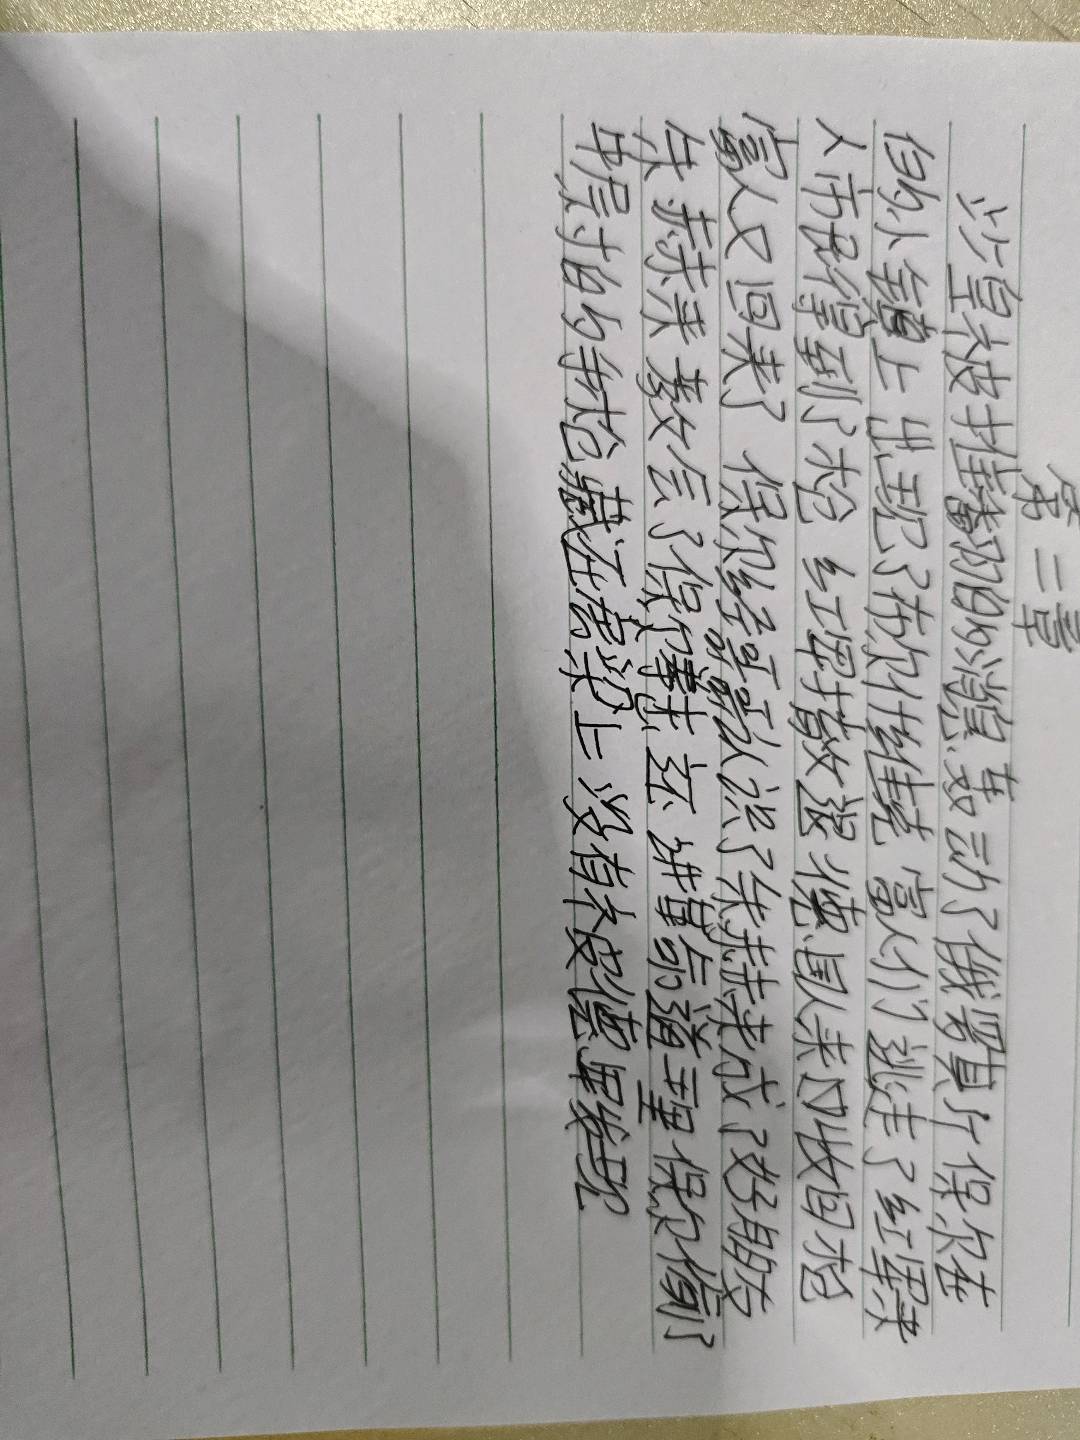 第二章
沙皇被推翻的消息轰动了俄罗其斤保尔在
的小镇上出现了布尔什维克富人们逃走了红军来
人市民得到了枪红军撤张德国人来收回枪
富人又回来了保尔经哥哥认识了朱赫来成了好朋友
朱赫来教会了保尔拳击还讲革命道理保尔偷了
中尉的手枪藏在房梁上没有被德军发现